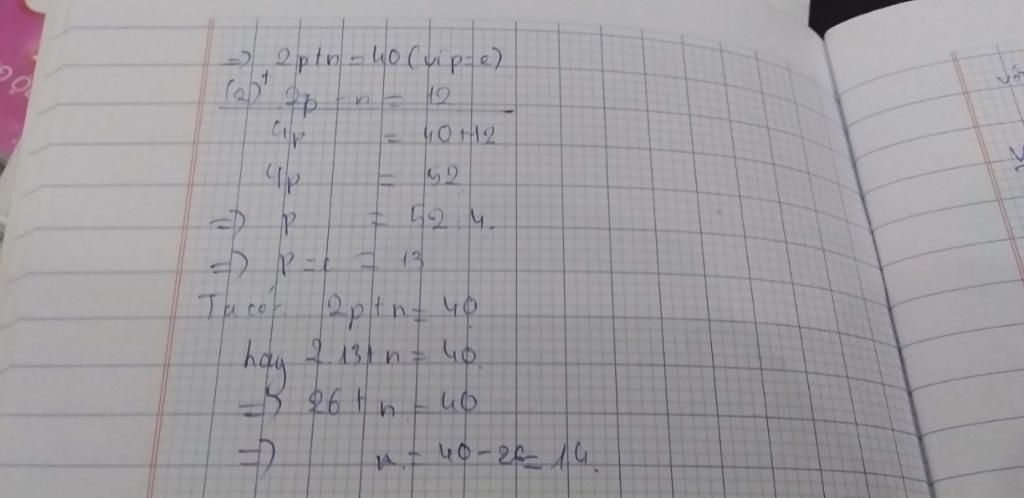 => 2p+n = 40 (vì p=e)
(2)+ 2p - n = 12
4p = 40+12
4p = 52
=> p = 52:4.
=> p=e = 13
Ta có: 2p+n = 40
hay 2.13+n = 40
=> 26 + n = 40
=> n = 40-26=14.